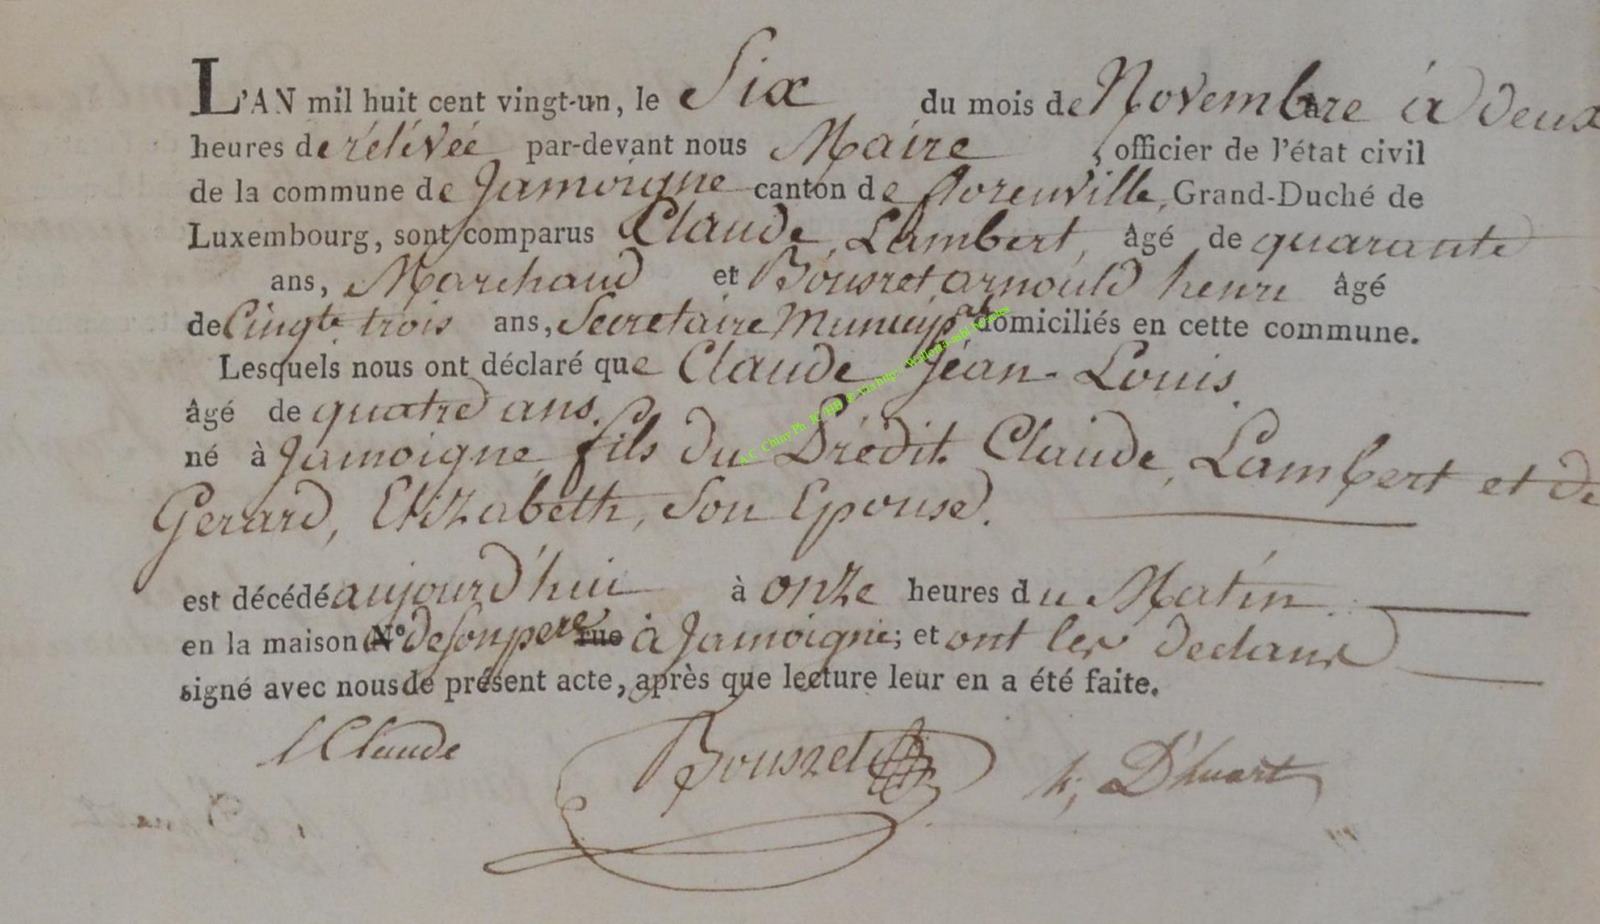 L'AN mil huit cent vingt-un, le Six du mois de Novembre à deux
heures de rélévée par-devant nous Maire, officier de l'état civil
de la commune de Jamoigne canton de florenville, Grand-Duché de
Luxembourg, sont comparus Claude, Lambert, âgé de quarante
ans, Marchand et Bousret arnould henri âgé
de Cinqte trois ans, Secretaire Municipal domiciliés en cette commune.
Lesquels nous ont déclaré que Claude Jean-Louis.
âgé de quatre ans.
né à Jamoigne, fils du Prédit. Claude, Lambert et de
Gerard, Elizabeth, Son Epouse.
est décédé aujourd'hui à onze heures du Matin.
en la maison N° de son pere rue à Jamoigne; et ont les declarans
signé avec nous le présent acte, après que lecture leur en a été faite.
l Claude Bousret h; D'huart
A.C. Chiny Ph.